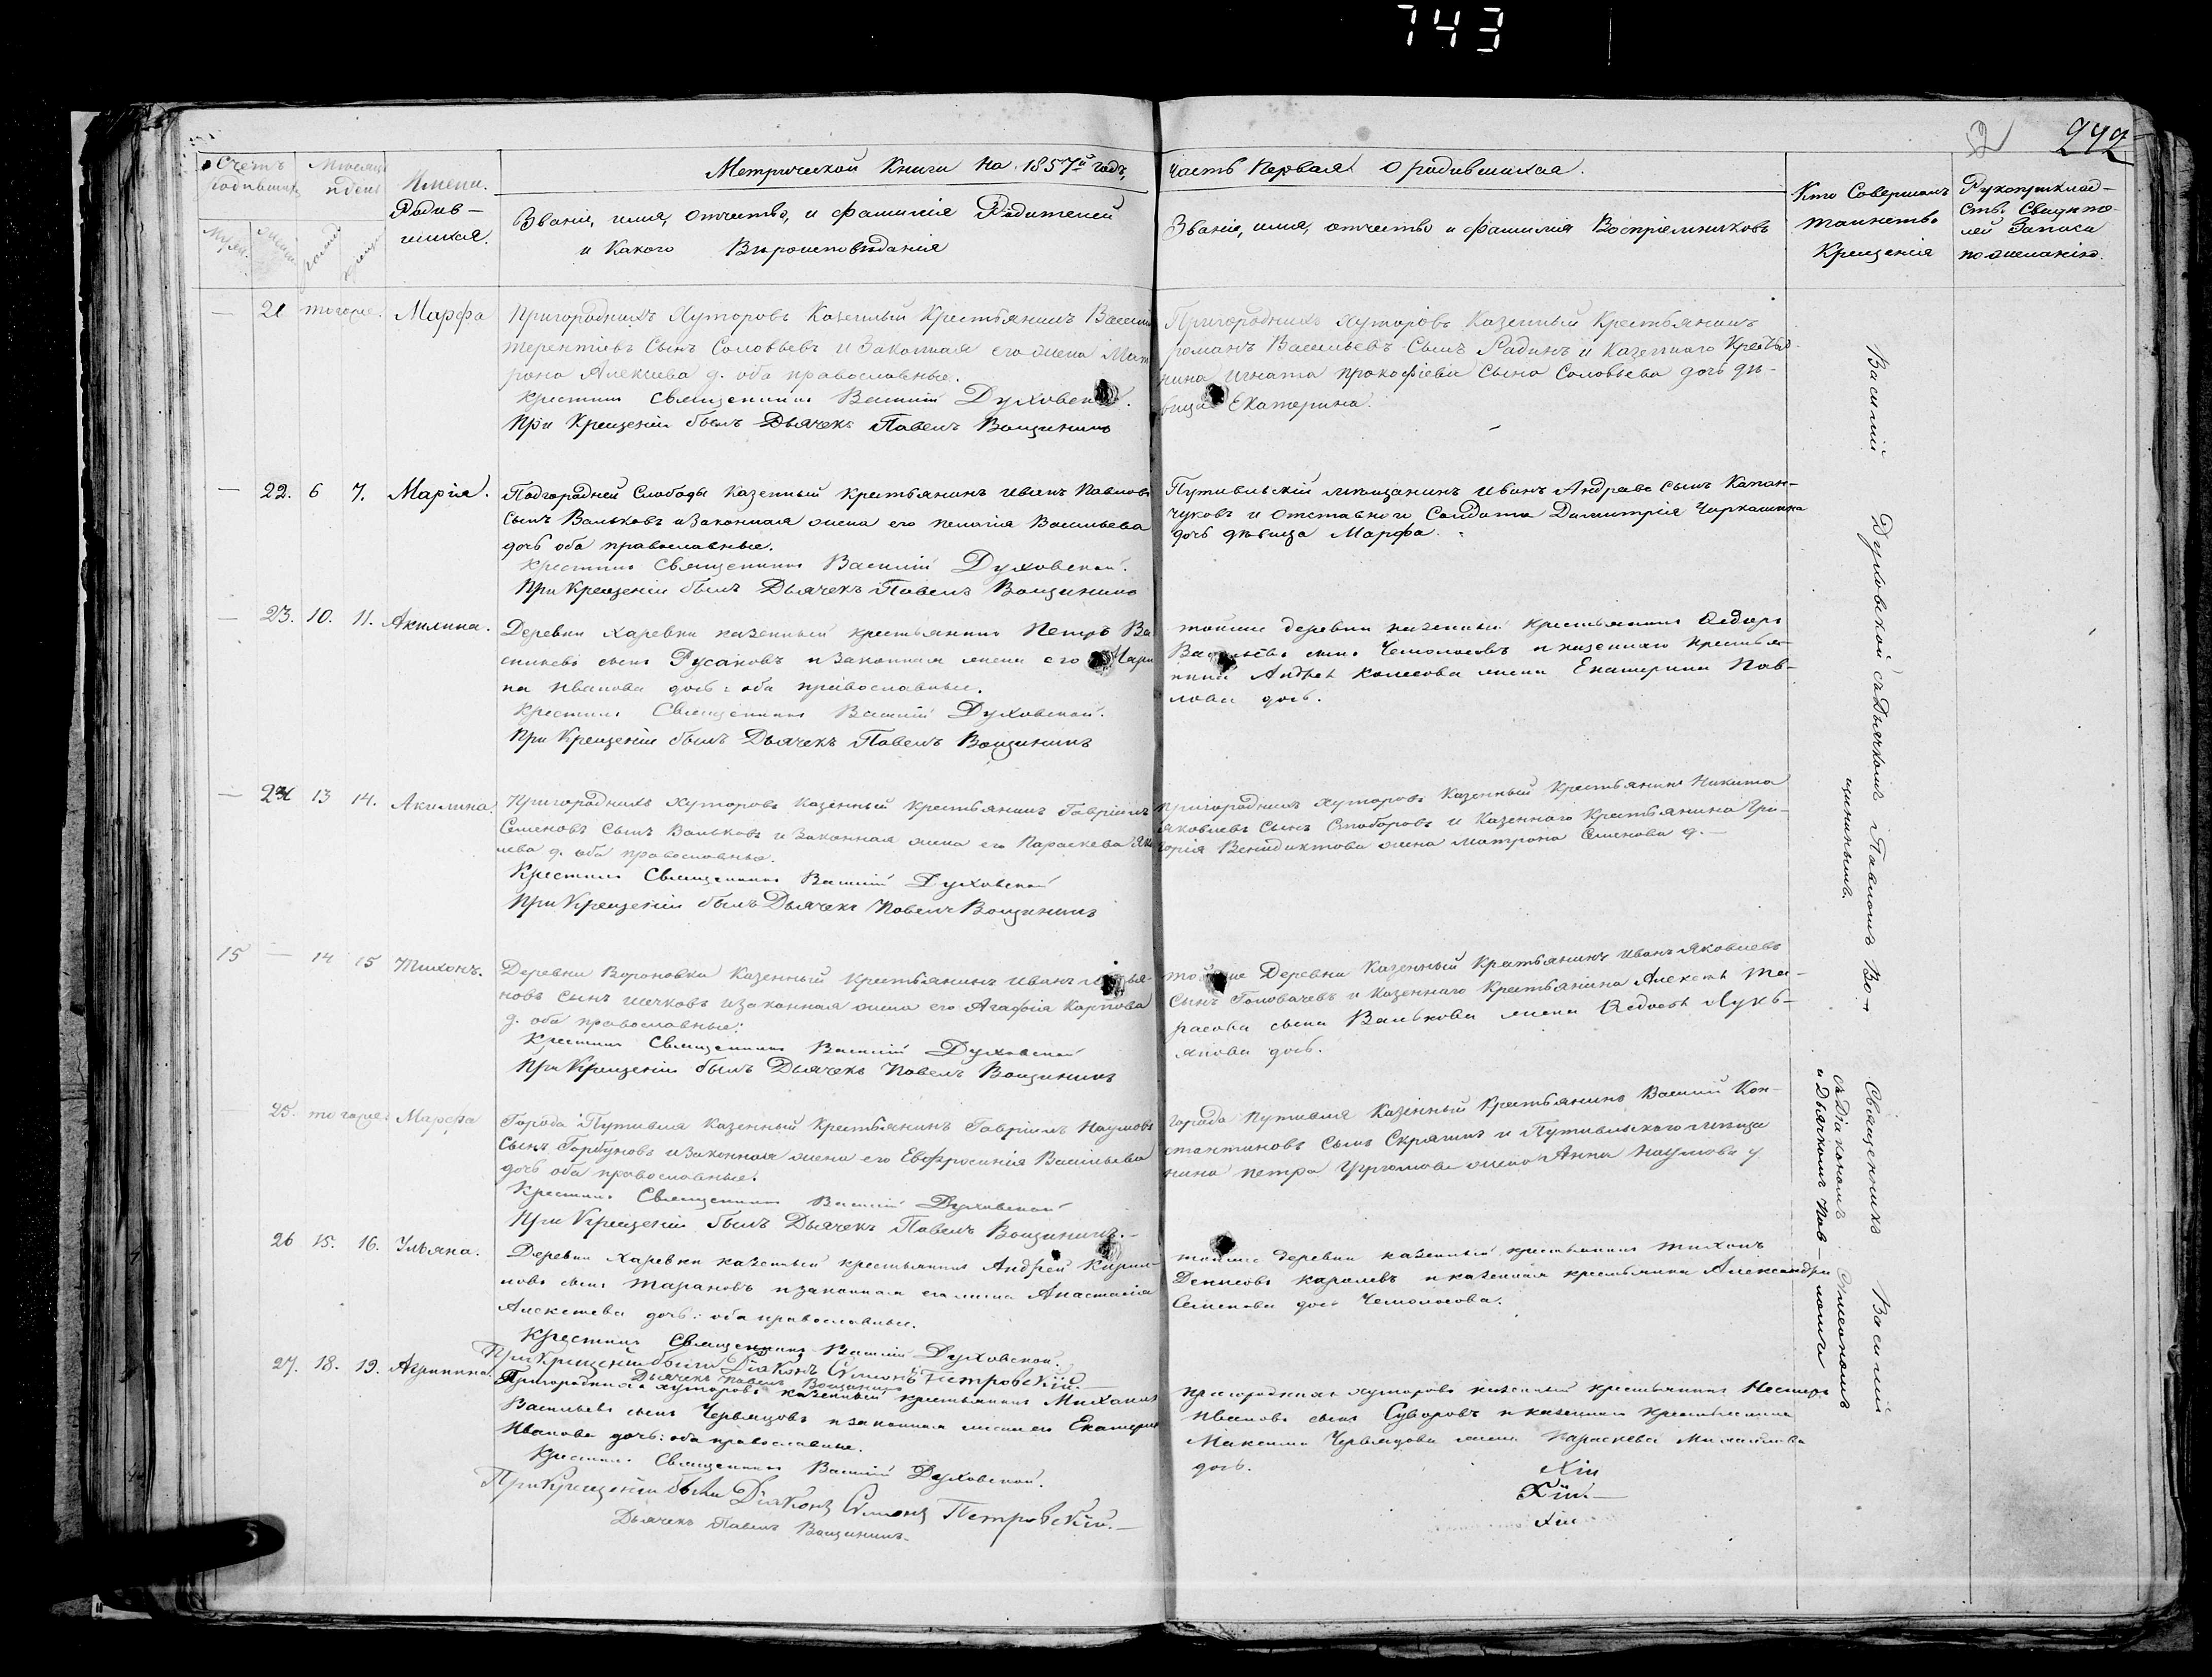 743
2
242
Счетъ родившихъ
Мѣсяцъ и день
Имена Родив-
шихся.
Метрической Книги на 1857й годъ,
Званіе, имя, отчество, и фамилія Родителей
и Какого Вѣроисповѣданія
часть Первая О родившихся.
Званіе, имя, отчество и фамилія Воспріемниковъ
Кто Совершалъ
таинство
Крещенія
Рукоприклад-
ство Свидѣте-
лей Записи
по желанію.
— 21 тогоже. Марфа
Пригороднихъ Хуторовъ Казенный Крестьянинъ
терентіевъ Сынъ Соловьевъ и Законная его жена Мат
рона Алексѣева д. оба православные.
Крестилъ Священникъ Василій Духовской.
При Крещеніи былъ Дьячекъ Павелъ Вощининъ
Пригороднихъ Хуторовъ Казенный Крестьянинъ
романъ Васильевъ Сынъ Радинъ и Казеннаго Крестья-
нина Игната Прокофіева Сына Соловьева дочь дѣ-
вица Екатерина.
— 22. 6 7. Марія.
Подгородней Слободы Казенный Крестьянинъ Иванъ Павловъ
Сынъ Вальковъ и Законная жена его Пелагія Васильева
дочь оба православные.
Крестилъ Священникъ Василій Духовской.
При Крещеніи былъ Дьячекъ Павелъ Вощининъ
Путивльскій мѣщанинъ Иванъ Андреевъ Сынъ Капан-
чуковъ и отставного Солдата Димитрія Черкашина
дочь дѣвица Марфа.
— 23. 10. 11. Акилина.
Деревни Харевки казенный крестьянинъ Петръ Ва
сильевъ сынъ Русановъ и Законная жена его Мари
на Иванова дочь: оба православные.
Крестилъ Священникъ Василій Духовской.
При Крещеніи былъ Дьячекъ Павелъ Вощининъ
тойже деревни казенный крестьянинъ Ѳедоръ
Васильевъ сынъ Чемолосовъ и казеннаго крестья-
нина Андрея Колесова жена Екатерина Пав-
лова дочь.
— 24 13 14. Акилина
Пригороднихъ Хуторовъ Казенный Крестьянинъ Гавріилъ
Семеновъ Сынъ Вальковъ и Законная жена его Параскева
лева д. оба православные.
Крестилъ Священникъ Василій Духовской
При Крещеніи былъ Дьячекъ Павелъ Вощининъ
Пригороднихъ Хуторовъ Казенный Крестьянинъ Никита
Яковлевъ Сынъ и Казеннаго Крестьянина Гри-
горія Венидиктова жена Матрона Семенова д.—
15 — 14 15 Тихонъ.
Деревни Вороновки Казенный Крестьянинъ Иванъ
новъ Сынъ и законная жена его Агафія Карпова
д. оба православные.
Крестилъ Священникъ Василій Духовской
При Крещеніи былъ Дьячекъ Павелъ Вощининъ
тойже Деревни Казенный Крестьянинъ Иванъ Яковлевъ
Сынъ Головачевъ и Казеннаго Крестьянина Алексѣя Та-
расова сына Валькова жена Ѳедосья Лукь-
янова дочь.
25. тогоже. Марфа
Города Путивля Казенный Крестьянинъ Гавріилъ Наумовъ
Сынъ Горбуновъ и Законная жена его Евфросинія Васильева
дочь оба православные.
Крестилъ Священникъ Василій Духовской
При Крещеніи былъ Дьячекъ Павелъ Вощининъ.—
Города Путивля Казенный Крестьянинъ Василій Кон-
стантиновъ Сынъ и Путивльского мѣща
нина Петра жена Анна Наумова д
26 15. 16. Ульяна.
Деревни Харевки казенный крестьянинъ Андрей Кирил-
новъ сынъ Тарановъ и законная его жена Анастасія
Алексѣева дочь: оба православные.
Крестилъ Священникъ Василій Духовской.
При Крещеніи были Діаконъ Симеонъ Петровскій.—
Дьячекъ Павелъ Вощининъ
тойже деревни казенный крестьянинъ Тихонъ
Денисовъ Королевъ и казенная крестьянка Александра
Семенова дочь Чемолосова.
27. 18. 19. Агрипина.
Пригороднихъ хуторовъ казенный крестьянинъ Михаилъ
Васильевъ сынъ Червяцовъ и законная жена его Екатерина
Иванова дочь: оба православные.
Крестилъ Священникъ Василій Духовской.
При Крещеніи были Діаконъ Симеонъ Петровскій.—
Дьячекъ Павелъ Вощининъ.
Пригороднихъ хуторовъ казенный крестьянинъ Несторъ
Ивановъ сынъ Суворовъ и казеннаго крестьянина
Максима Червяцова жена Параскева Михайлова
дочь.
Василій Духовской съ Дьячкомъ Павломъ Во-
щининымъ.
Священникъ Василій
съ Діакономъ Симеономъ
и Дьячкомъ Пав-ломъ